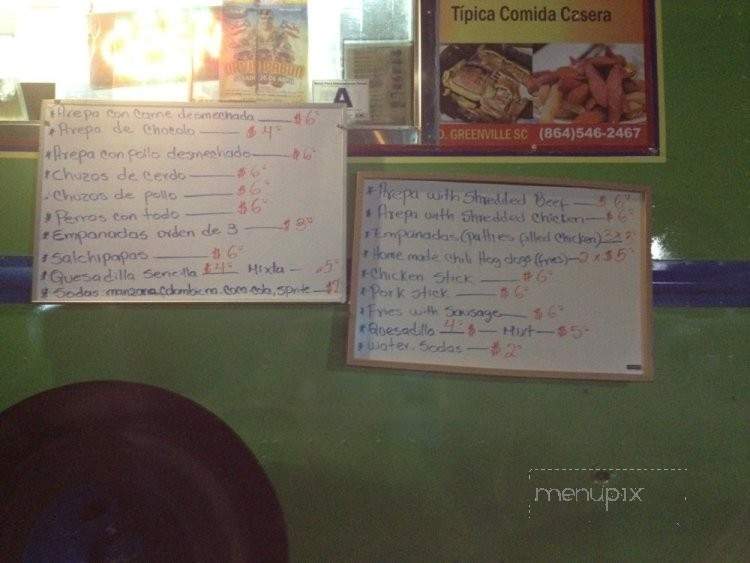 Típica Comida Casera
O. GREENVILLE SC (864)546-2467
A
* Arepa con carne desmechada $6°
* Arepa de Chocolo $4°
* Arepa con pollo desmechado $6°
* Chuzos de cerdo $6°
. Chuzos de pollo $6°
* Perros con todo $6°
* Empanadas orden de 3 $3°
* Salchipapas $6°
* Quesadilla Sencilla $4° Mixta 5°
* Sodas: manzana, colombiana, coca cola, sprite $2
* Arepa with Shredded Beef $6°
* Arepa with Shredded Chicken $6°
* Empanadas (patties filled chicken) 3x2°
* Home made chili Hog dogs (fries) 2 x $5°
* Chicken Stick $6°
* Pork Stick $6°
* Fries with Sausage $6°
* Quesadilla 4° $ Mixt $5°
* Water. Sodas $2°
menupix